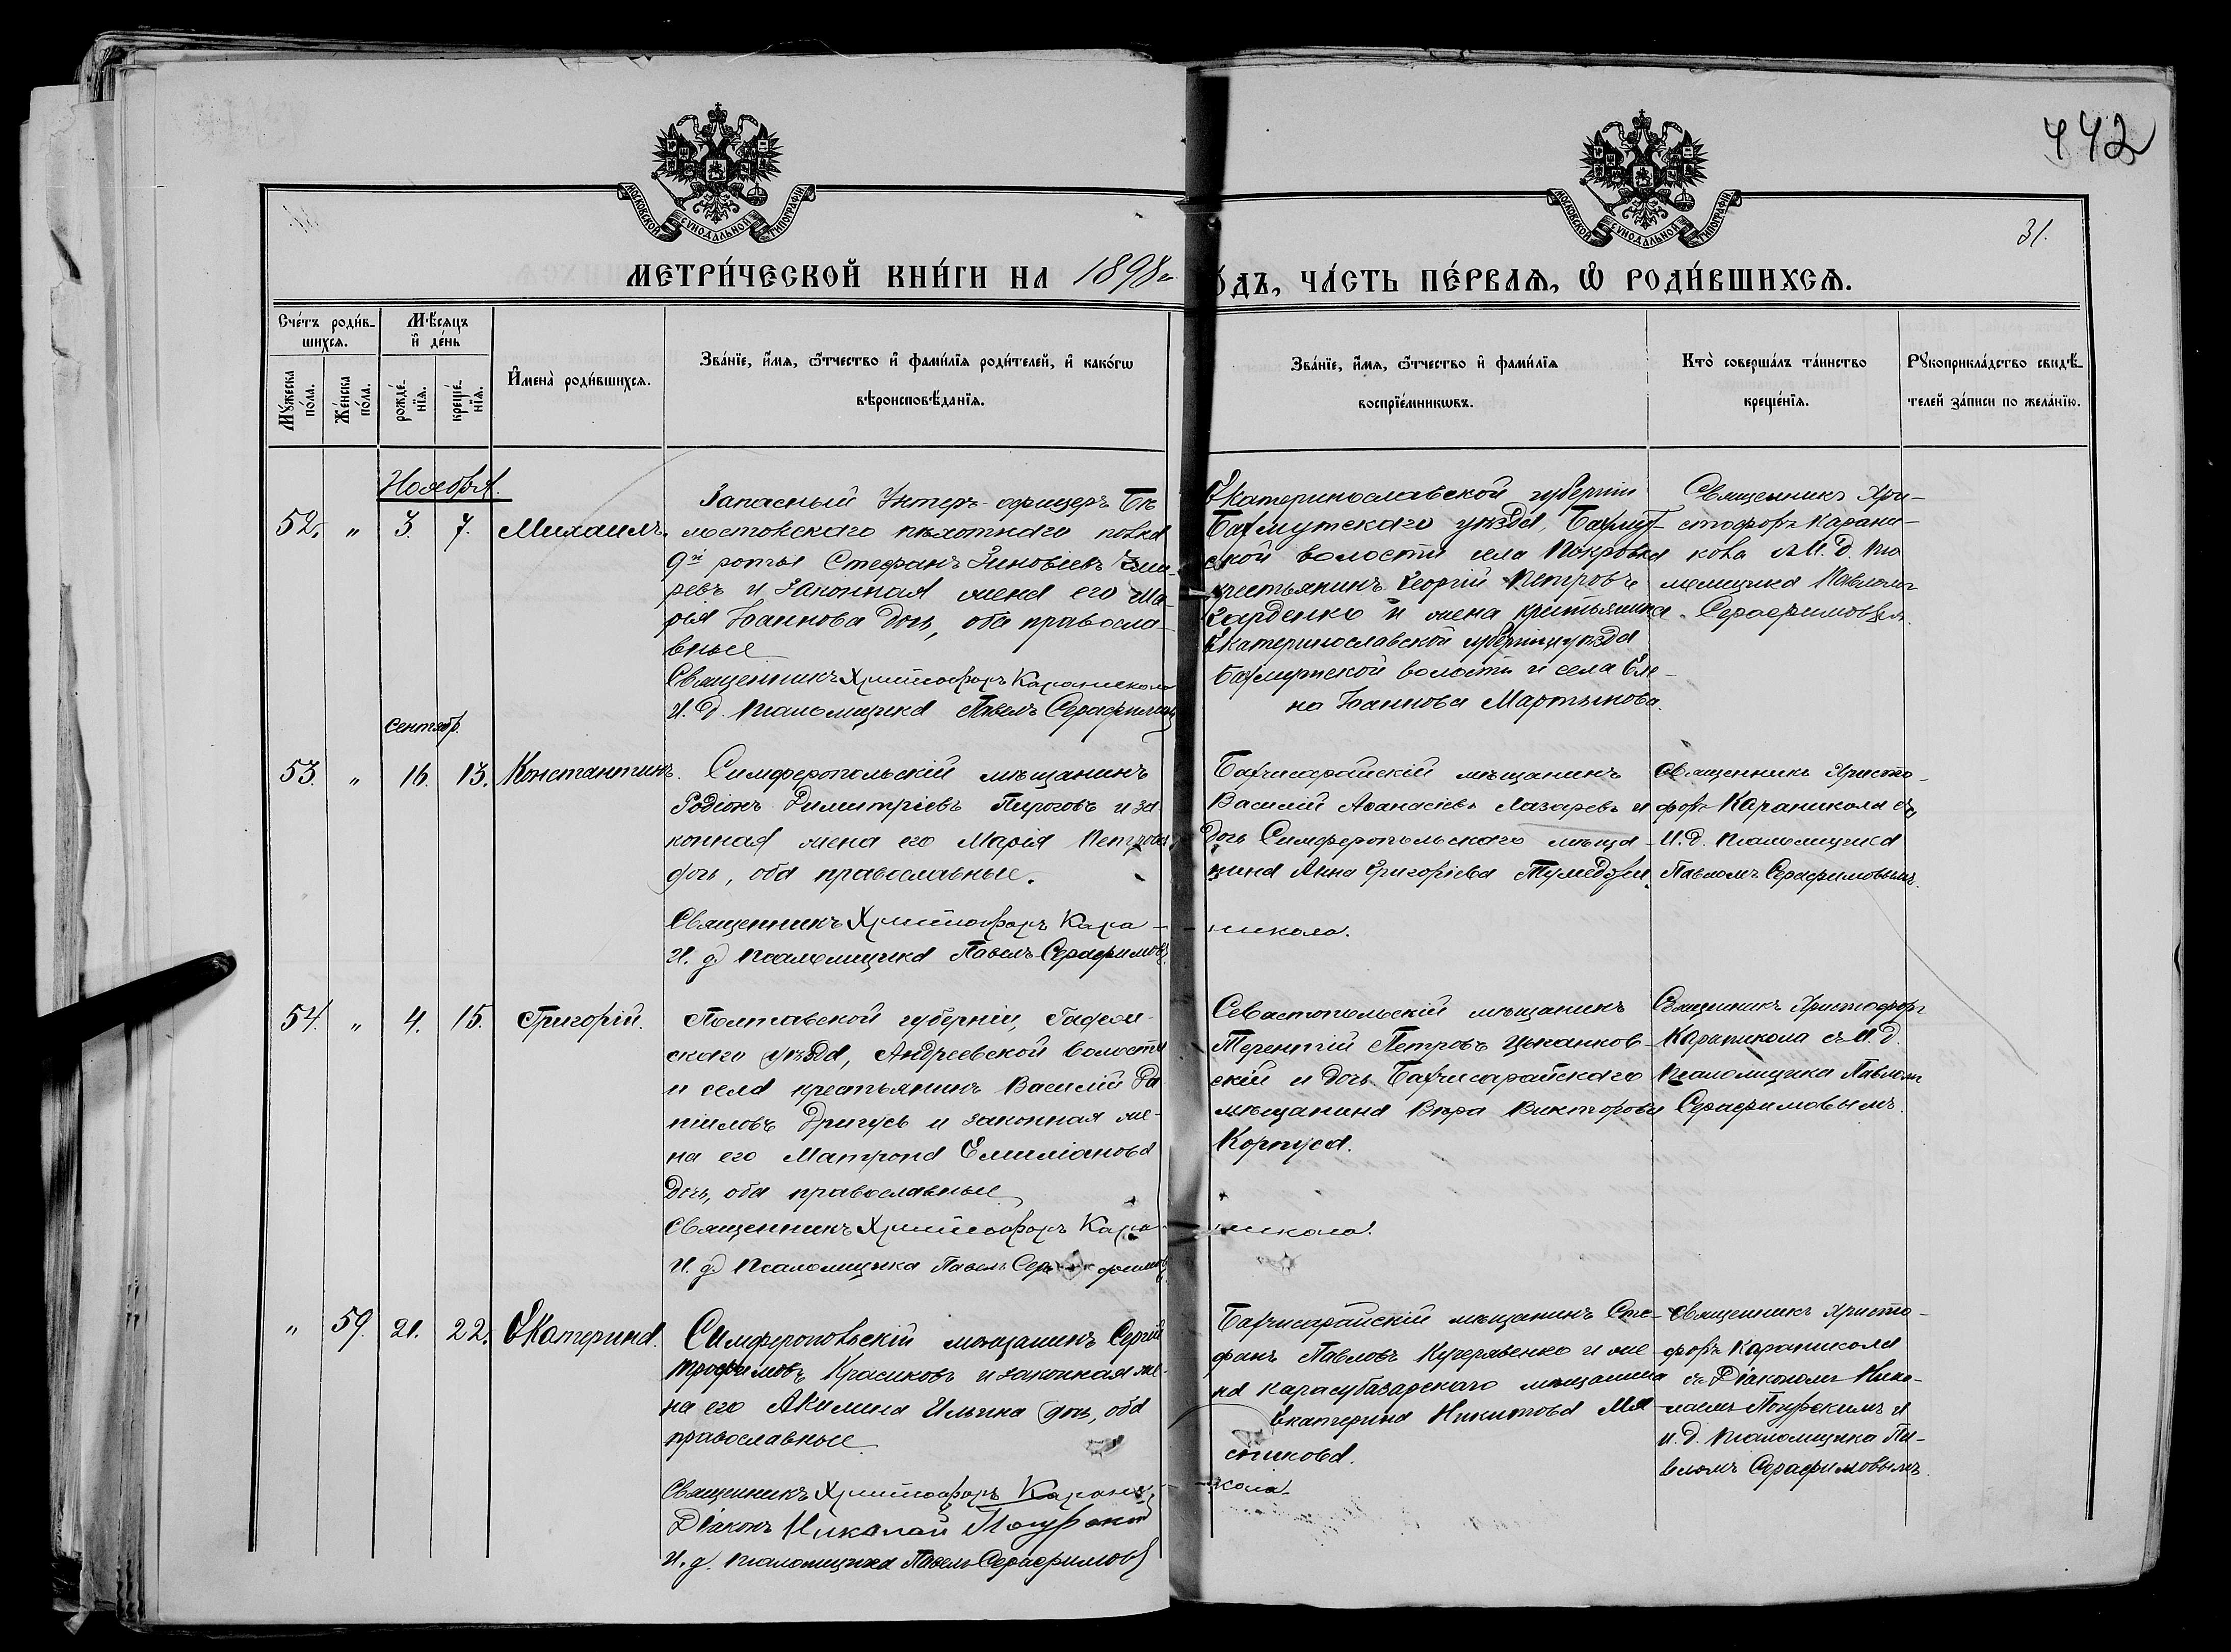 442
31.
МОСКОВСКОЙ СѴНОДАЛЬНОЙ ТИПОГРАФІИ
МОСКОВСКОЙ СѴНОДАЛЬНОЙ ТИПОГРАФІИ
МЕТРИ́ЧЕСКОЙ КНИ́ГИ НА 1898 О́ДЪ, ЧА́СТЬ ПЕ́РВАѦ, Ѡ РОДИ́ВШИХСѦ.
Сче́тъ роди́в-
шихсѧ.
Мꙋ́жеска по́ла.
Же́нска по́ла.
Мѣ́сяцъ и́ де́нь
рожде́-
нїѧ.
креще́-
нїѧ.
И҆мена̀ роди́вшихсѧ.
Зва́нїе, и҆́мѧ, ѻ҆́тчество и҆ фами́лїѧ роди́телей, и҆ како́гѡ
вѣроисповѣ́данїѧ.
Зва́нїе, и҆́мѧ, ѻ҆́тчество и҆ фами́лїѧ
воспрїе́мникѡвъ.
Кто̀ соверша́лъ та́инство
креще́нїѧ.
Рꙋкоприкла́дство свидѣ́-
телей за́писи по жела́нїю.
Ноября.
52. " 3. 7. Михаилъ.
Запасный Унтеръ-офицеръ Бѣ
лостокскаго пѣхотнаго полка
9й роты Стефанъ Зиновіевъ
ревъ и законная жена его Ма-
рія Іоаннова дочь, оба правосла-
вные
Священникъ Христофоръ Караникола
И. д. Псаломщика Павелъ Серафимовъ
Екатеринославской губерніи
Бахмутскаго уѣзда, Бахмут-
ской волости села Покровка
крестьянинъ Георгій Петровъ
и жена крестьянина
Екатеринославской губерніи уѣзда
Бахмутской волости и села Еле-
на Іоаннова Мартынова.
Священникъ Хри-
стофоръ Карани-
кола И. д. Пса
ломщика Павломъ
Серафимовымъ.
Сентябр.
53. " 16. 13. Константинъ.
Симферопольскій мѣщанинъ
Родіонъ Димитріевъ Пироговъ и за
конная жена его Марія Петрова
дочь, оба православные.
Священникъ Христофоръ Кара-
никола.
И. д. Псаломщика Павелъ Серафимовъ.
Бахчисарайскій мѣщанинъ
Василій Аѳанасіевъ Лазаревъ и
дочь Симферопольскаго мѣща-
нина Анна Григоріева
Священникъ Христо-
форъ Караникола съ
И. д. Псаломщика
Павломъ Серафимовымъ.
54. " 4. 15. Григорій.
Полтавской губерніи, Гадяч-
скаго уѣзда, Андреевской волости
и села крестьянинъ Василій Да
ніиловъ Дригусь и законная же-
на его Матрона Емиліанова
дочь, оба православные
Священникъ Христофоръ Кара-
никола.
И. д. Псаломщика Павелъ Серафимовъ
Севастопольскій мѣщанинъ
Терентій Петровъ Цыканков-
скій и дочь Бахчисарайскаго
мѣщанина Вѣра Викторова
Корпуса.
Священникъ Христофоръ
Караникола съ И. д.
Псаломщика Павломъ
Серафимовымъ.
" 59. 21. 22. Екатерина.
Симферопольскій мѣщанинъ Сергій
Трофимовъ Красиковъ и законная же-
на его Акилина Ильина дочь, оба
православные
Священникъ Христофоръ Карани-
кола.
Діаконъ Николай
И. д. Псаломщика Павелъ Серафимовъ
Бахчисарайскій мѣщанинъ Сте-
фанъ Павловъ Кучерявенко и же-
на карасубазарскаго мѣщанина
Екатерина Никитова Мя
сникова.
Священникъ Христо-
форъ Караникола
съ Діакономъ Нико-
лаемъ и
и. д. Псаломщика Па-
вломъ Серафимовымъ.